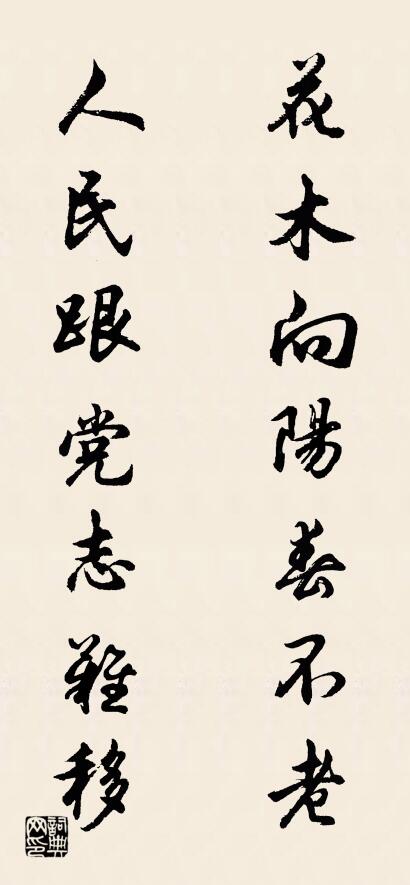 花木向陽春不老
人民跟党志難移
詞典網印